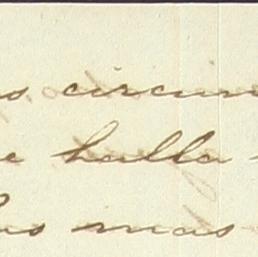 s circun
e halla
us mas